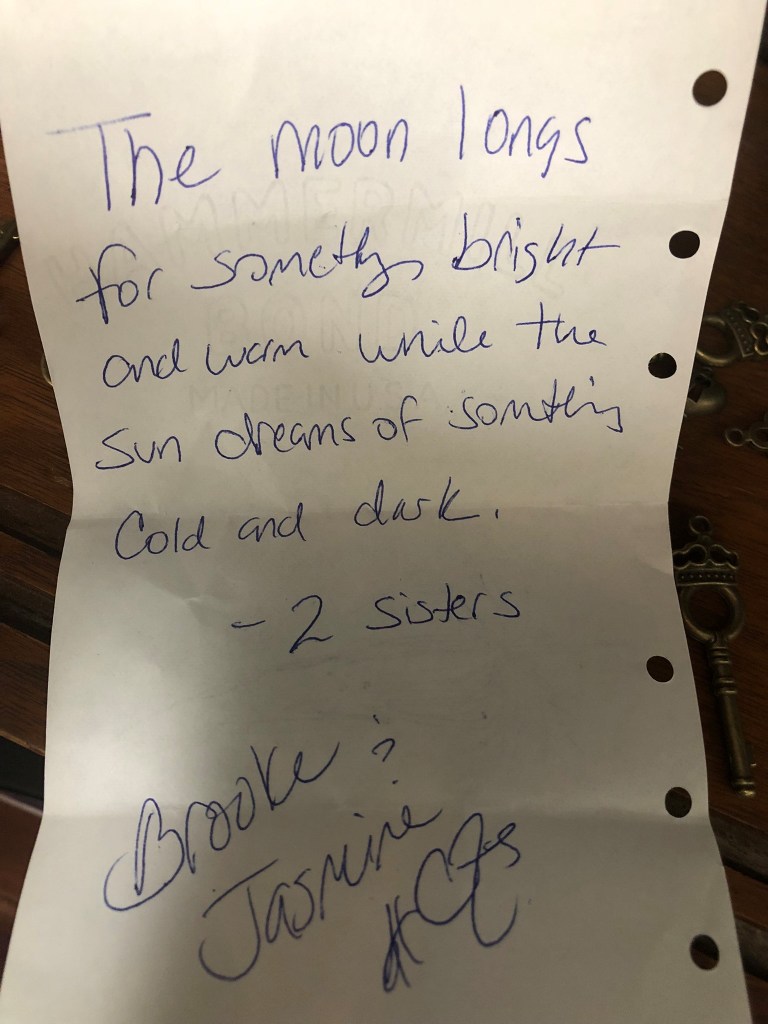 The moon longs
for something bright
and warm while the
sun dreams of something
Cold and dark.
- 2 sisters
Brooke &
Jasmine